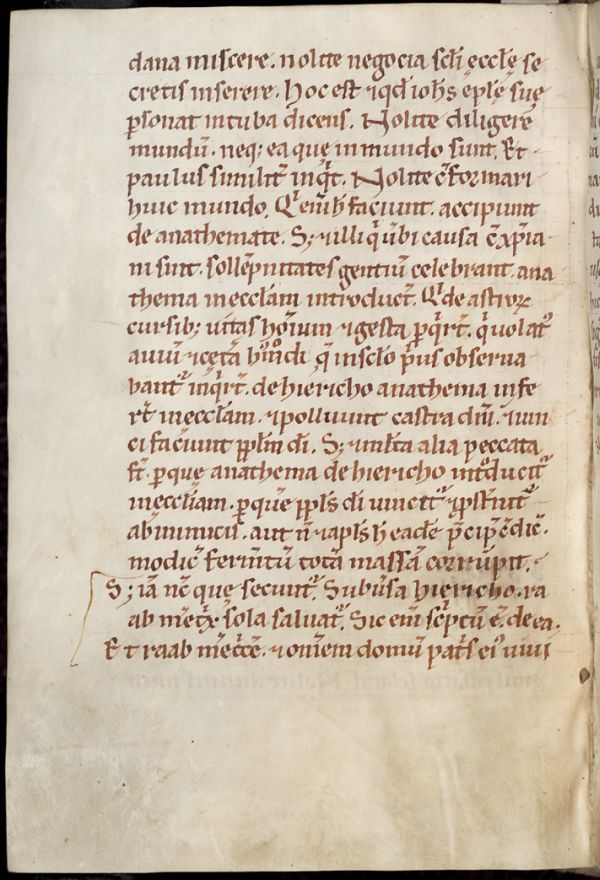 dana miscere. nolite negocia scłi ęccłę se
cretis inserere. hoc est ⁊ qđ ioħs ep̄lę suę
ꝑsonat in tuba dicens. Nolite diligere
mundū. neq; ea quę in mundo sunt. Et
paulus similit̄ inq̄t. Nolite c̄formari
huic mundo. Qͥ eni̅ ħ faciunt. accipiunt
de anathemate. S; ⁊ illi qͥ ubi causa xp̄ia
ni sunt. sollēpnitates gentiū celebrant. ana
thema in ęccłam introduct̄. Qͥ de astroꝝ
cursib; uitas hōīum ⁊ gesta ꝑqͥrt̄. qͥ uolat᷑
auiū ⁊ cet̄a hͦmͦdi. q̄ in scło pͥus obserua
bant᷑ inqͥrt̄. de hiericho anathema infe
rt̄ in ęccłam. ⁊ polluunt castra dn̄i. ⁊ uin
ci faciunt ppłm di̅. S; ⁊ multa alia peccata
st̄. ꝑ quę anathema de hiericho int̄ducit᷑
in ęccłiam. ꝑ quę ppłs di̅ uincit᷑ ⁊ ꝓst̄nit᷑
ab inimicis. aut n̄ ⁊ apłs hęc eadē p̄cipit dic̄.
modic̄ ferm̄tū totā massā corrūpit.
S; iā nc̄ quę secunt᷑. Subūsa hiericho. ra
ab m̄et̄x sola saluat᷑. Sic eni̅ scͥptū ē. de ea.
Et raab m̄et̄cē. ⁊ omnem domū pat̄s eiꝰ uiui